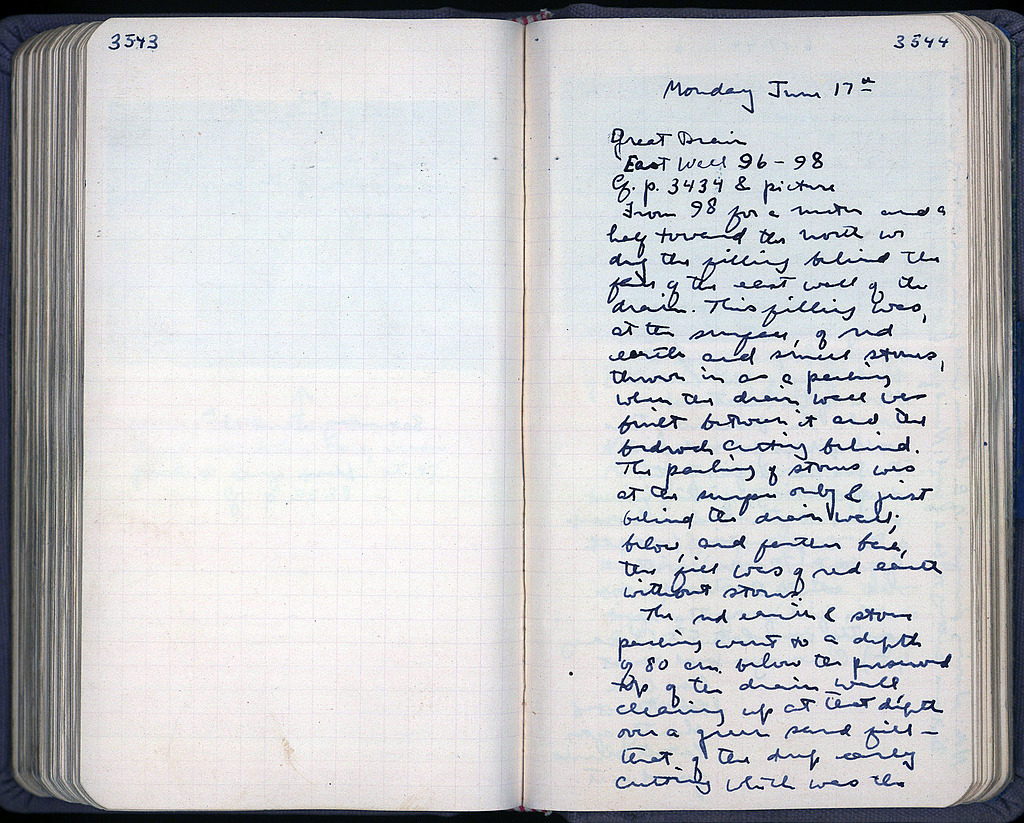 3543
3544
Monday June 17th
Great Drain
East Wall 96-98
Cf. p. 3434 & picture
From 98 for a meter and a
half toward the north we
dug the filling behind the
face of the east wall of the
drain. This filling was,
at the surface, of red
earth and small stones,
thrown in as a packing
when the drain wall was
built between it and the
bedrock cutting behind.
The packing of stones was
at the surface only & just
behind the drain wall;
below, and farther back,
the fill was of red earth
without stones.
The red earth & stone
packing went to a depth
of 80 cm. below the preserved
top of the drain wall,
clearing up at that depth
over a green sand fill -
that of the deep early
cutting which was the